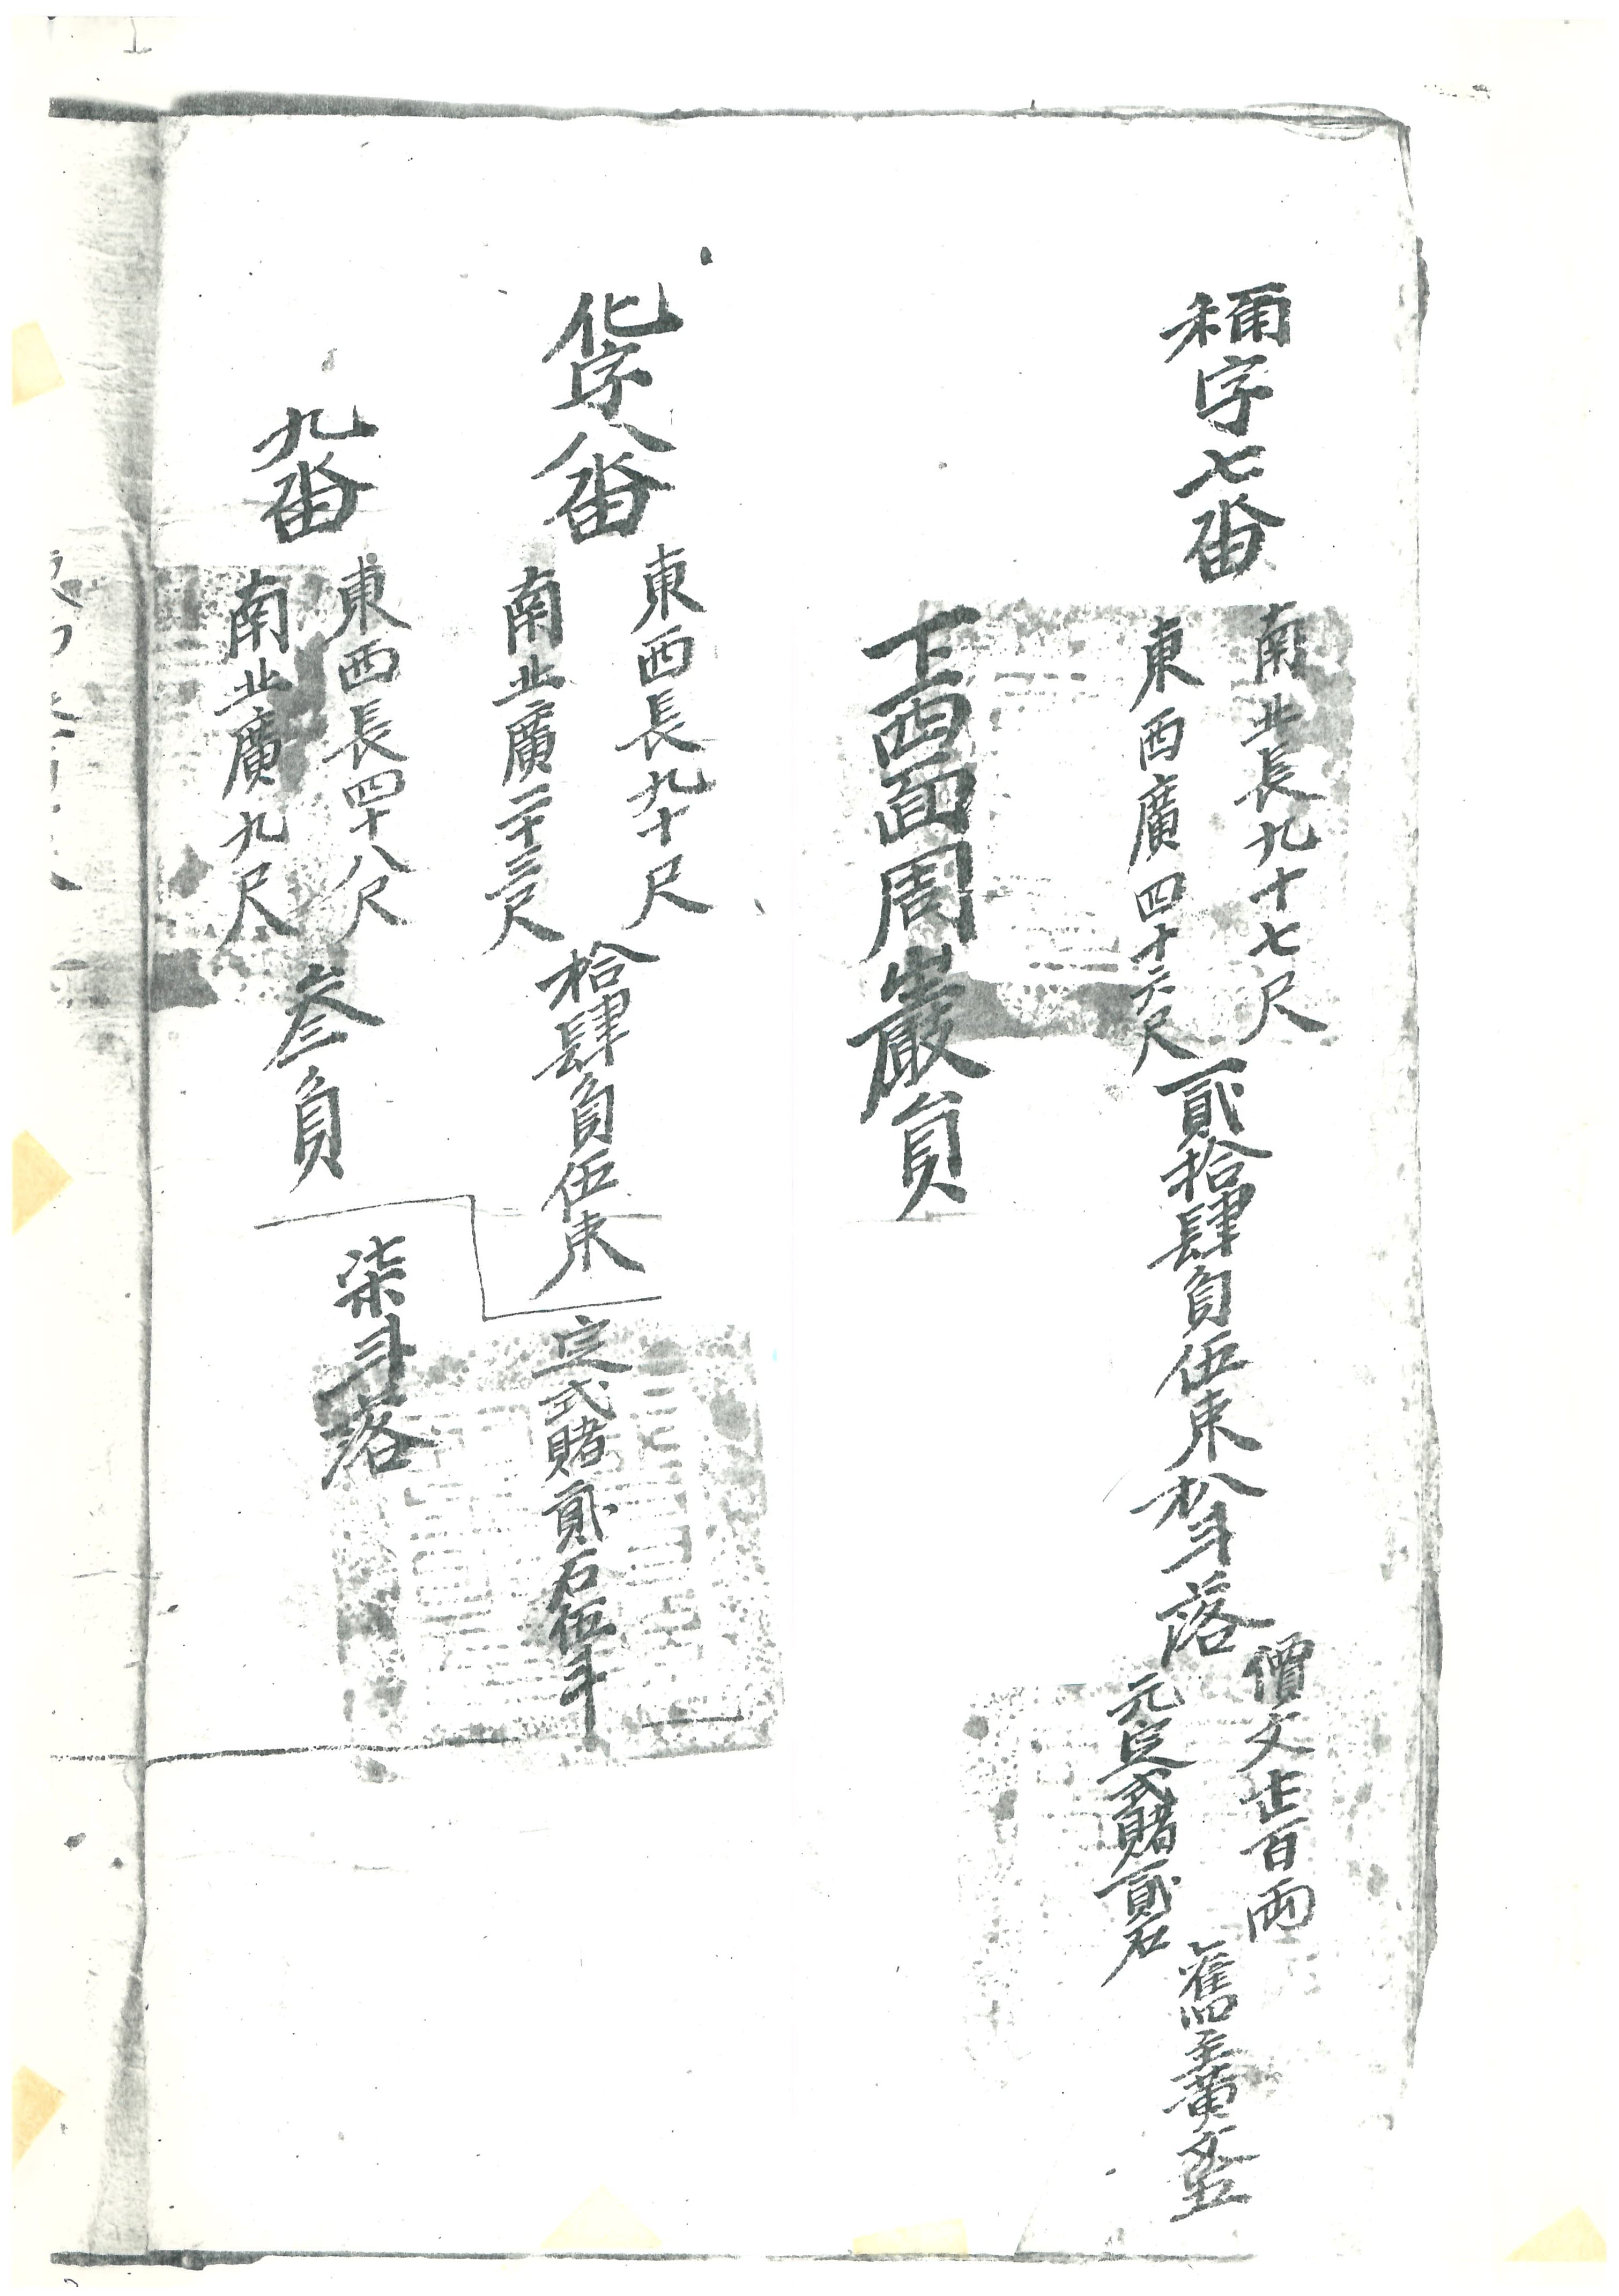 稱字七畓
南北長九十七尺
東西廣四十六尺
貳拾肆負伍束
斗落
價文 百兩
元定式賭貳石
舊 黃
下西面周巖員
化字八畓
東西長九十尺
南北廣二十三尺
拾肆負伍束
定式賭貳石伍斗
九畓
東西長四十八尺
南北廣九尺
叁負
柒斗落